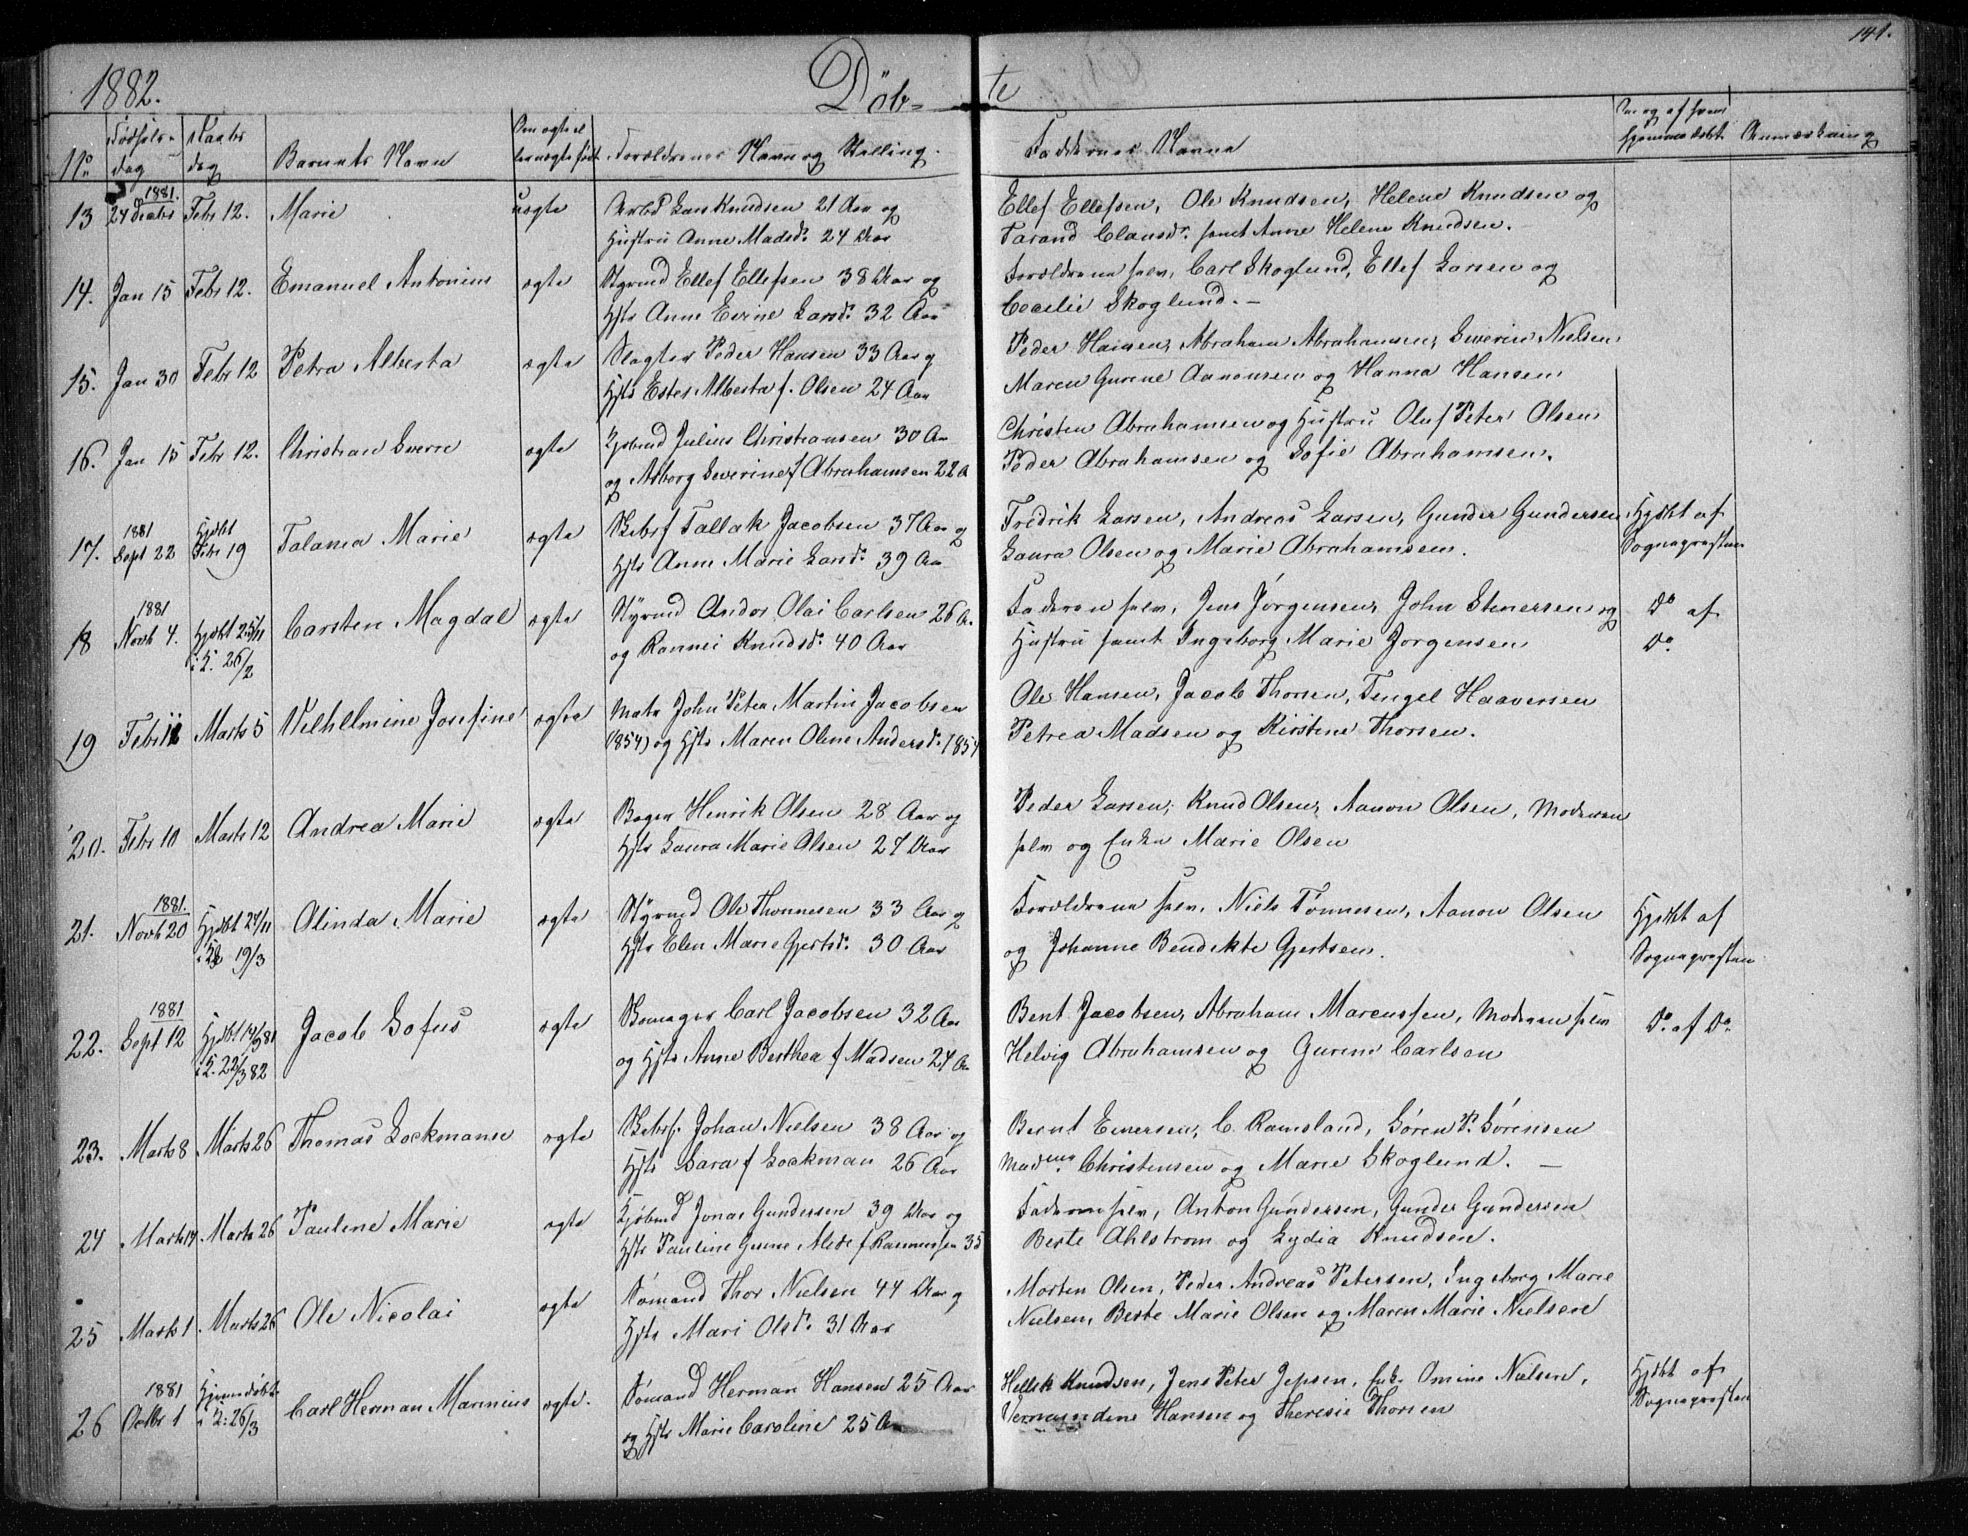 141.
1882.
Döb-te
No Födsels-dag Daabsdag Barnets Navn Om ægte el. uægte født Forældrenes Navn og Stilling. Faddernes Navne Om og af hvem hjemmedöbt Anmærkning
13 1881. 24 Decbr Febr 12. Marie uægte Arbd Lars Knudsen 21 Aar og
Hustru Anne Madsd. 24 Aar
Ellef Ellefsen, Ole Knudsen, Helene Knudsen og
Tarand Clausdr. samt Anne Helene Knudsen.
14. Jan 15 Febr 12. Emanuel Antonius ægte Styrmd Ellef Ellefsen 38 Aar og
Hste Anne Evine Larsd. 32 Aar
Forældrene selv, Carl Skoglund, Ellef Larsen og
Cecilie Skoglund. —
15. Jan 30 Febr 12 Petra Alberta ægte Slagter Peder Hansen 33 Aar og
Hste Ester Alberta f. Olsen 24 Aar
Peder Hansen, Abraham Abrahamsen, Severin Nielsen
Maren Gurine Aanonsen og Hanna Hansen
16. Jan 15 Febr 12. Christian Sverre ægte Kjøbmd Julius Christiansen 30 Aar
og Asborg Severine f Abrahamsen 22 A
Christen Abrahamsen og Hustru Oluf Peter Olsen
Peder Abrahamsen og Sofie Abrahamsen.
17. 1881 Sept 22 Hjdöbt Febr 19 Talama Marie ægte Skibsf Tallak Jacobsen 37 Aar og
Hste Anne Marie Larsd. 39 Aar
Fredrik Larsen, Andreas Larsen, Gunder Gundersen
Laura Olsen og Marie Abrahamsen.
Hjdöbt af
Sognepræsten
18 1881 Novb 4. Hjdöbt 25/11 i K. 26/2 Carsten Magdal ægte Styrmd Andor Olai Carlsen 26 A.
og Rannei Knudsd. 40 Aar
Faderen selv, Jens Jörgensen, John Stenersen og
Hustru samt Ingeborg Marie Jorgensen
Do af
Do
19 Febr 11 Marts 5 Vilhelmine Josefine ægte Matr John Peter Martin Jacobsen
(1854) og Hste Maren Oline Andersd. 1854
Ole Hansen, Jacob Thorsen, Tengel Haaversen
Petrea Madsen og Kirstine Thorsen.
20. Febr 10 Marts 12 Andrea Marie ægte Bager Henrik Olsen 28 Aar og
Hste Laura Marie Olsen 27 Aar
Peder Larsen, Knud Olsen, Aanon Olsen, Moderen
selv og Enke Marie Olsen
21. 1881. Novb 20 Hjdöbt 27/11 i K 19/3 Olinda Marie ægte Styrmd Ole Thonnesen 33 Aar og
Hste Elen Marie Gjertsd. 30 Aar
Forældrene selv, Niels Tönnesen, Aanon Olsen
og Johanne Bendikte Gjertsen.
Hjdöbt af
Sognepræsten
22. 1881 Sept 12 Hjdöbt 19/9 81 i K. 22/3 82 Jacob Sofus ægte Carl Jacobsen 32 Aar
og Hste Anne Berthea f Madsen 24 A
Bent Jacobsen, Abraham Marcussen, Moderen selv
Helvig Abrahamsen og Gurine Carlsen
Do af Do
23. Marts 8 Marts 26 Thomas Lockmann ægte Skibsf. Johan Nielsen 38 Aar og
Hste Sara f Lockman 26 Aar
Bernt Emersen, C. Ramsland, Sören P. Sörensen
Madme Christensen og Marie Skoglund. —
24 Marts 14 Marts 26 Pauline Marie ægte Kjöbmd Jonas Gundersen 39 Aar og
Hste Pauline Gurine Alede f Rasmussen 35
Faderen selv, Anton Gundersen, Gunder Gundersen
Berte Ahlstrom og Lydia Knudsen.
25 Marts 1 Marts 26 Ole Nicolai ægte Sömand Thor Nielsen 44 Aar og
Hste Mari Olsd. 31 Aar
Morten Olsen, Peder Andreas Petersen, Ingeborg Marie
Nielsen, Berte Marie Olsen og Maren Marie Nielsen
26 1881 Octbr 1 Hjemmedöbt i K: 26/3 Carl Herman Marinius ægte. Sömand Herman Hansen 25 Aar
og Hste Marie Caroline 25 Aar
Hellek Knudsen, Jens Peter Jepsen, Enke Omine Nielsen,
Vernundine Hansen og Theresie Thorsen
Hjdöbt af
Sognepræsten